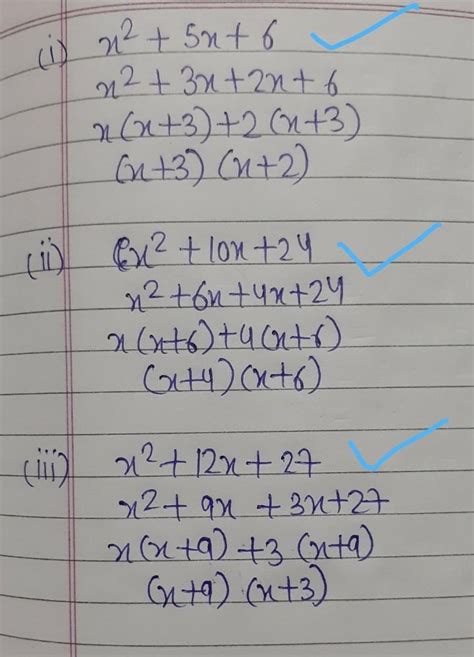 (i) x² + 5x + 6
x² + 3x + 2x + 6
x(x+3) + 2(x+3)
(x+3) (x+2)
(ii) x² + 10x + 24
x² + 6x + 4x + 24
x(x+6) + 4(x+6)
(x+4) (x+6)
(iii) x² + 12x + 27
x² + 9x + 3x + 27
x(x+9) + 3 (x+9)
(x+9) (x+3)